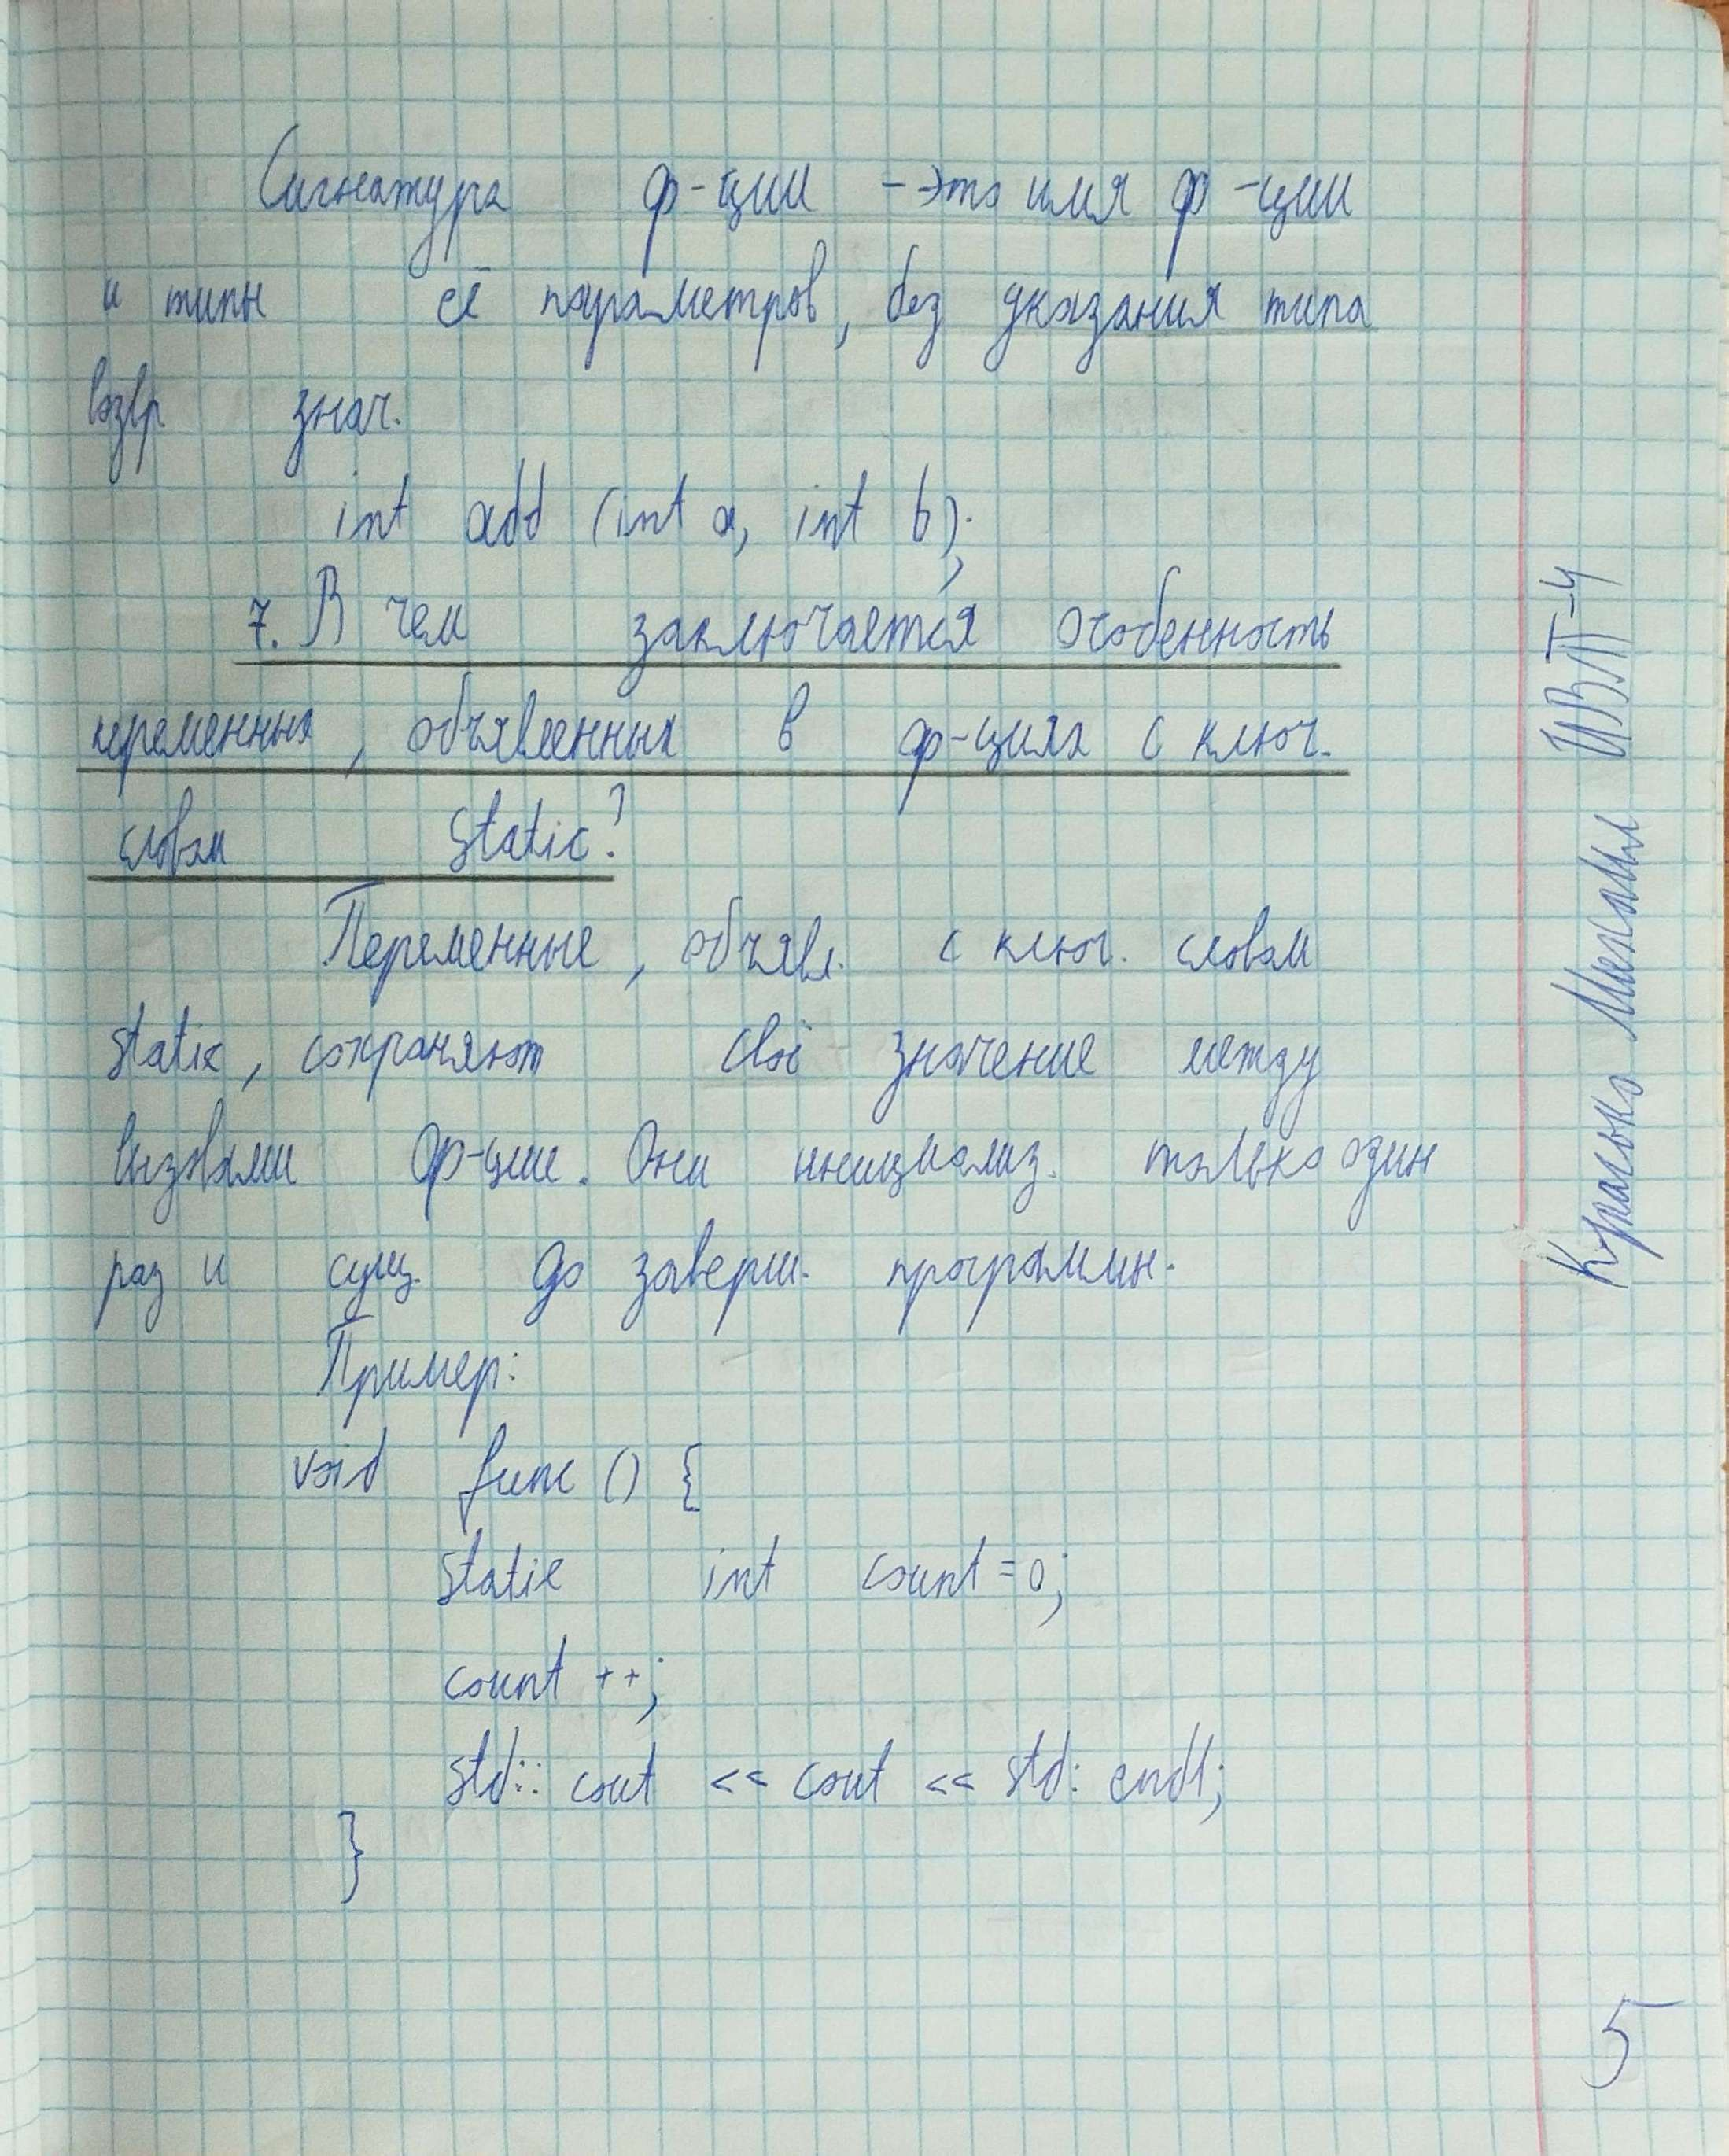 Сигнатура ф-ции - это имя ф-ции
и типы её параметров, без указания типа
возвр знач.
int add (int a, int b);
7. В чем заключается особенность
переменных, объявленных в ф-циях с ключ.
словом static?
Переменные, объявл. с ключ. словом
static, сохраняют своё значение между
вызовами ф-ции. Они инициализ. только один
раз и сущ. до заверш. программы.
Пример:
void func () {
static int count = 0;
count ++;
std:: cout << cout << std: endl;
}
Михаил ИВТ-4
5